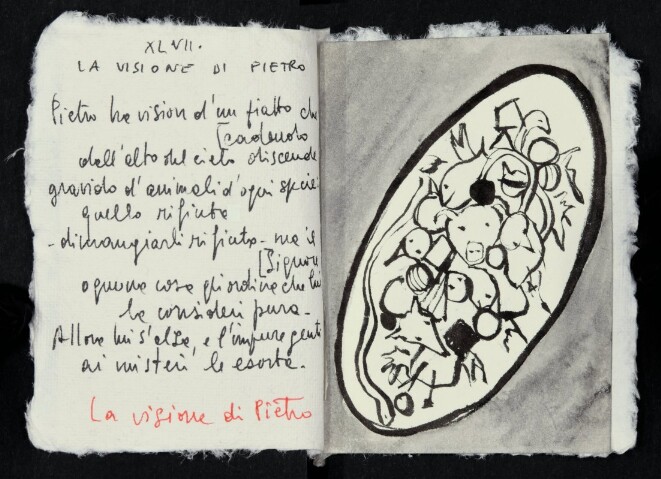 XLVII.
LA VISIONE DI PIETRO
Pietro ha vision d'un piatto che
[cadendo
dall'alto del cielo discende
gravido d'animali d'ogni specie
quello rifiuta
- di mangiarli rifiuta - ma il
[Signore
ognuna cosa gli ordina che lui
la consideri pura -
Allora lui s'alza, e l'impure genti
ai misteri le esorta.
La visione di Pietro